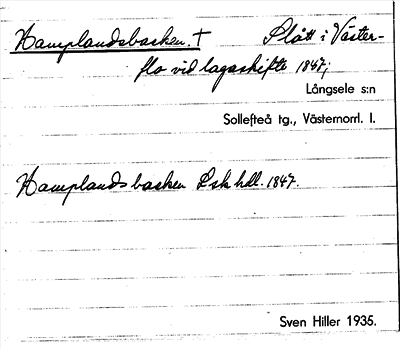 Hamplandsbacken. † Slått i Väster-
flo vid lagaskifte 1847;
Långsele s:n
Sollefteå tg., Västernorrl. l.
Hamplandsbacken Lsk hdl. 1847.
Sven Hiller 1935.